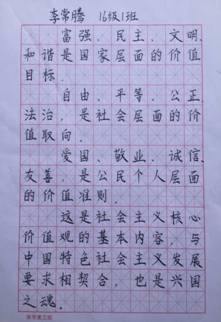 李常腾 16级1班
富强、民主、文明、
和谐是国家层面的价值
目标.
自由,平等,公正
法治,是社会层面的价
值取向.
爱国、敬业、诚信、
友善,是公民个人层面
的价值准则.
这是社会主义核心
价值观的基本内容,与
中国特色社会主义发展
要求相契合,也是兴国
之魂.